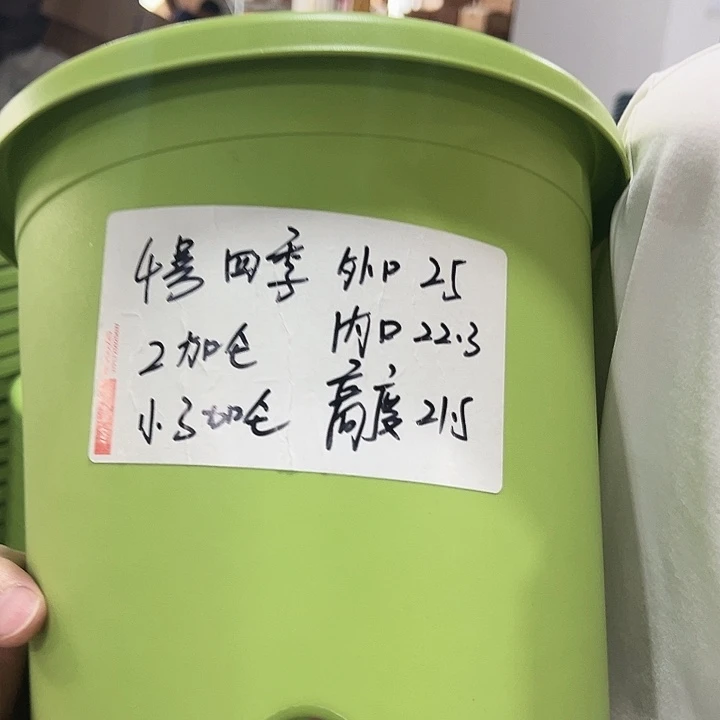 4号 四季 外口 25
2加仑 内口 22.3
小3加仑 高度 21.5